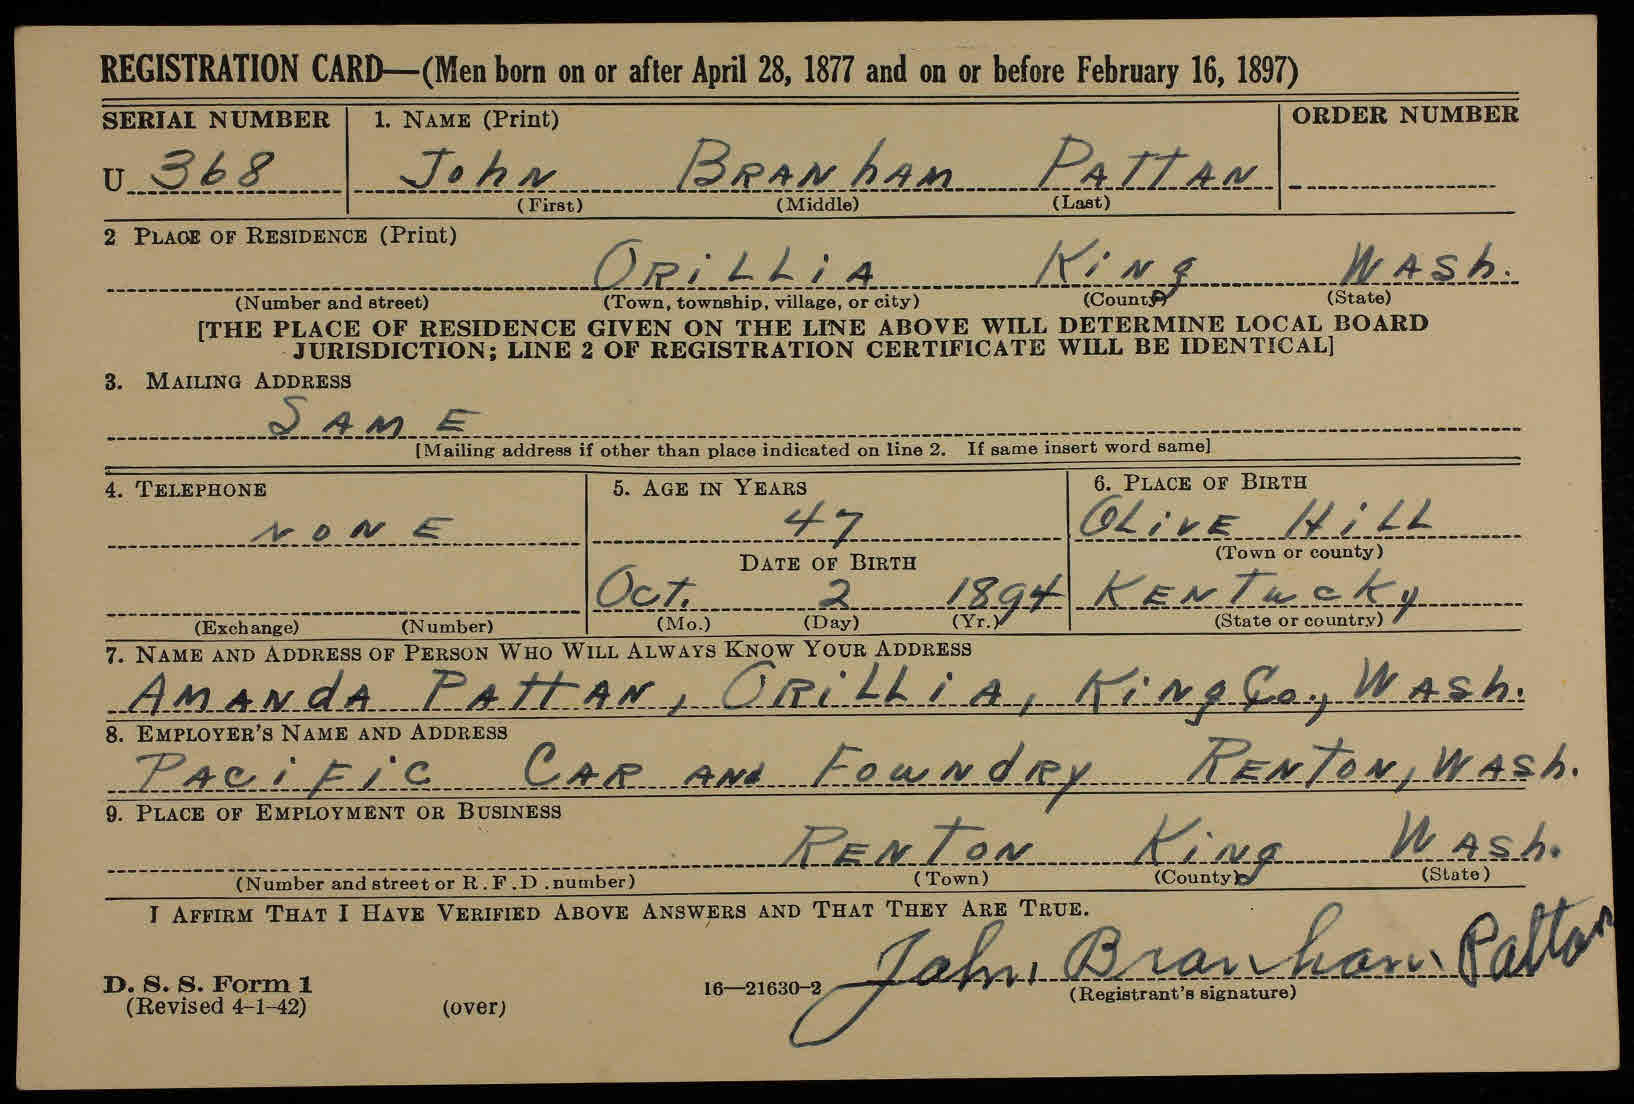 REGISTRATION CARD—(Men born on or after April 28, 1877 and on or before February 16, 1897)
SERIAL NUMBER 1. NAME (Print) ORDER NUMBER
U 368 John BRANhAM PATTAN
(First) (Middle) (Last)
2 PLACE OF RESIDENCE (Print)
ORiLLiA KiNg WASh.
(Number and street) (Town, township, village, or city) (County) (State)
[THE PLACE OF RESIDENCE GIVEN ON THE LINE ABOVE WILL DETERMINE LOCAL BOARD
JURISDICTION; LINE 2 OF REGISTRATION CERTIFICATE WILL BE IDENTICAL]
3. MAILING ADDRESS
SAME
[Mailing address if other than place indicated on line 2. If same insert word same]
4. TELEPHONE 5. AGE IN YEARS 6. PLACE OF BIRTH
NONE 47 OLiVE HiLL
DATE OF BIRTH (Town or county)
Oct. 2 1894 KENTucKy
(Exchange) (Number) (Mo.) (Day) (Yr.) (State or country)
7. NAME AND ADDRESS OF PERSON WHO WILL ALWAYS KNOW YOUR ADDRESS
AMANdA PATTAN, ORiLLiA, KiNg Co., WASh.
8. EMPLOYER'S NAME AND ADDRESS
PACiFiC CAR ANd FouNdRy RENTON, WASh.
9. PLACE OF EMPLOYMENT OR BUSINESS
RENTON KiNg WASh.
(Number and street or R.F.D. number) (Town) (County) (State)
I AFFIRM THAT I HAVE VERIFIED ABOVE ANSWERS AND THAT THEY ARE TRUE.
John Branham Pattan
D. S. S. Form 1 16—21630-2 (Registrant's signature)
(Revised 4-1-42) (over)